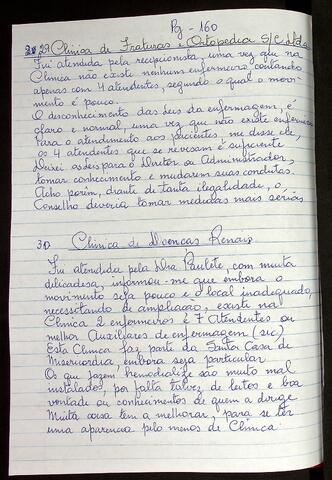 Pg - 160
29 Clinica de Fraturas e Ortopedia S/C Ltda
Fui atendida pela recepcionista, uma vez que na
Clinica não existe nenhum enfermeiro, contando
apenas com 4 atendentes, segundo o qual o movi-
mento é pouco.
O desconhecimento das Leis da enfermagem, é
claro e normal, uma vez que não existe enfermeiro
Para o atendimento aos pacientes, me disse ele,
os 4 atendentes que se revesam é suficiente
Deixei as Leis para o Diretor ou Administrador,
tomar conhecimento e mudarem suas condutas.
Acho porém, diante de tanta ilegalidade, o
Conselho deveria tomar medidas mais sérias
30 Clinica de Doenças Renais
Fui atendida pela Dra Paulete, com muita
delicadesa, informou-me que embora o
movimento seja pouco e o local inadequado,
necessitando de ampliação, existe na
Clinica 2 enfermeiros e 7 Atendentes ou
melhor Auxiliares de enfermagem (sic)
Esta Clinica faz parte da Santa Casa de
Misericordia, embora seja particular
Os que fazem hemodialize são muito mal
instalados, por falta talvez de leitos e boa
vontade ou conhecimentos de quem a dirige
Muita coisa tem a melhorar, para se ter
uma aparencia pelo menos de Clinica.